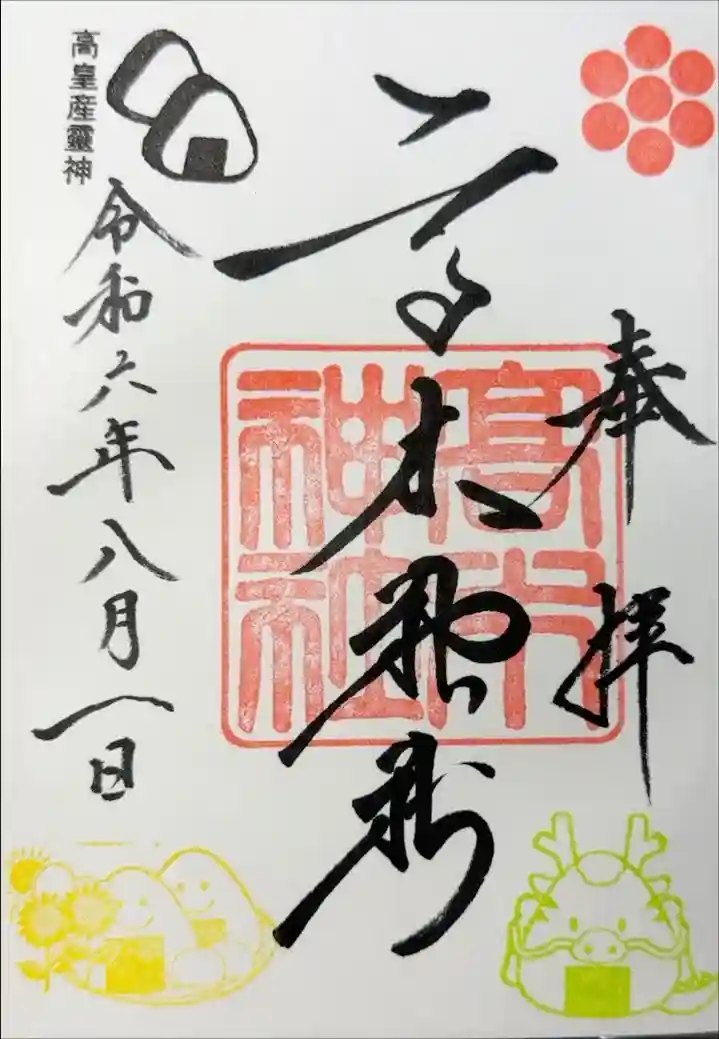 奉拝
高木神社
高木神社
令和六年八月一日
高皇産靈神